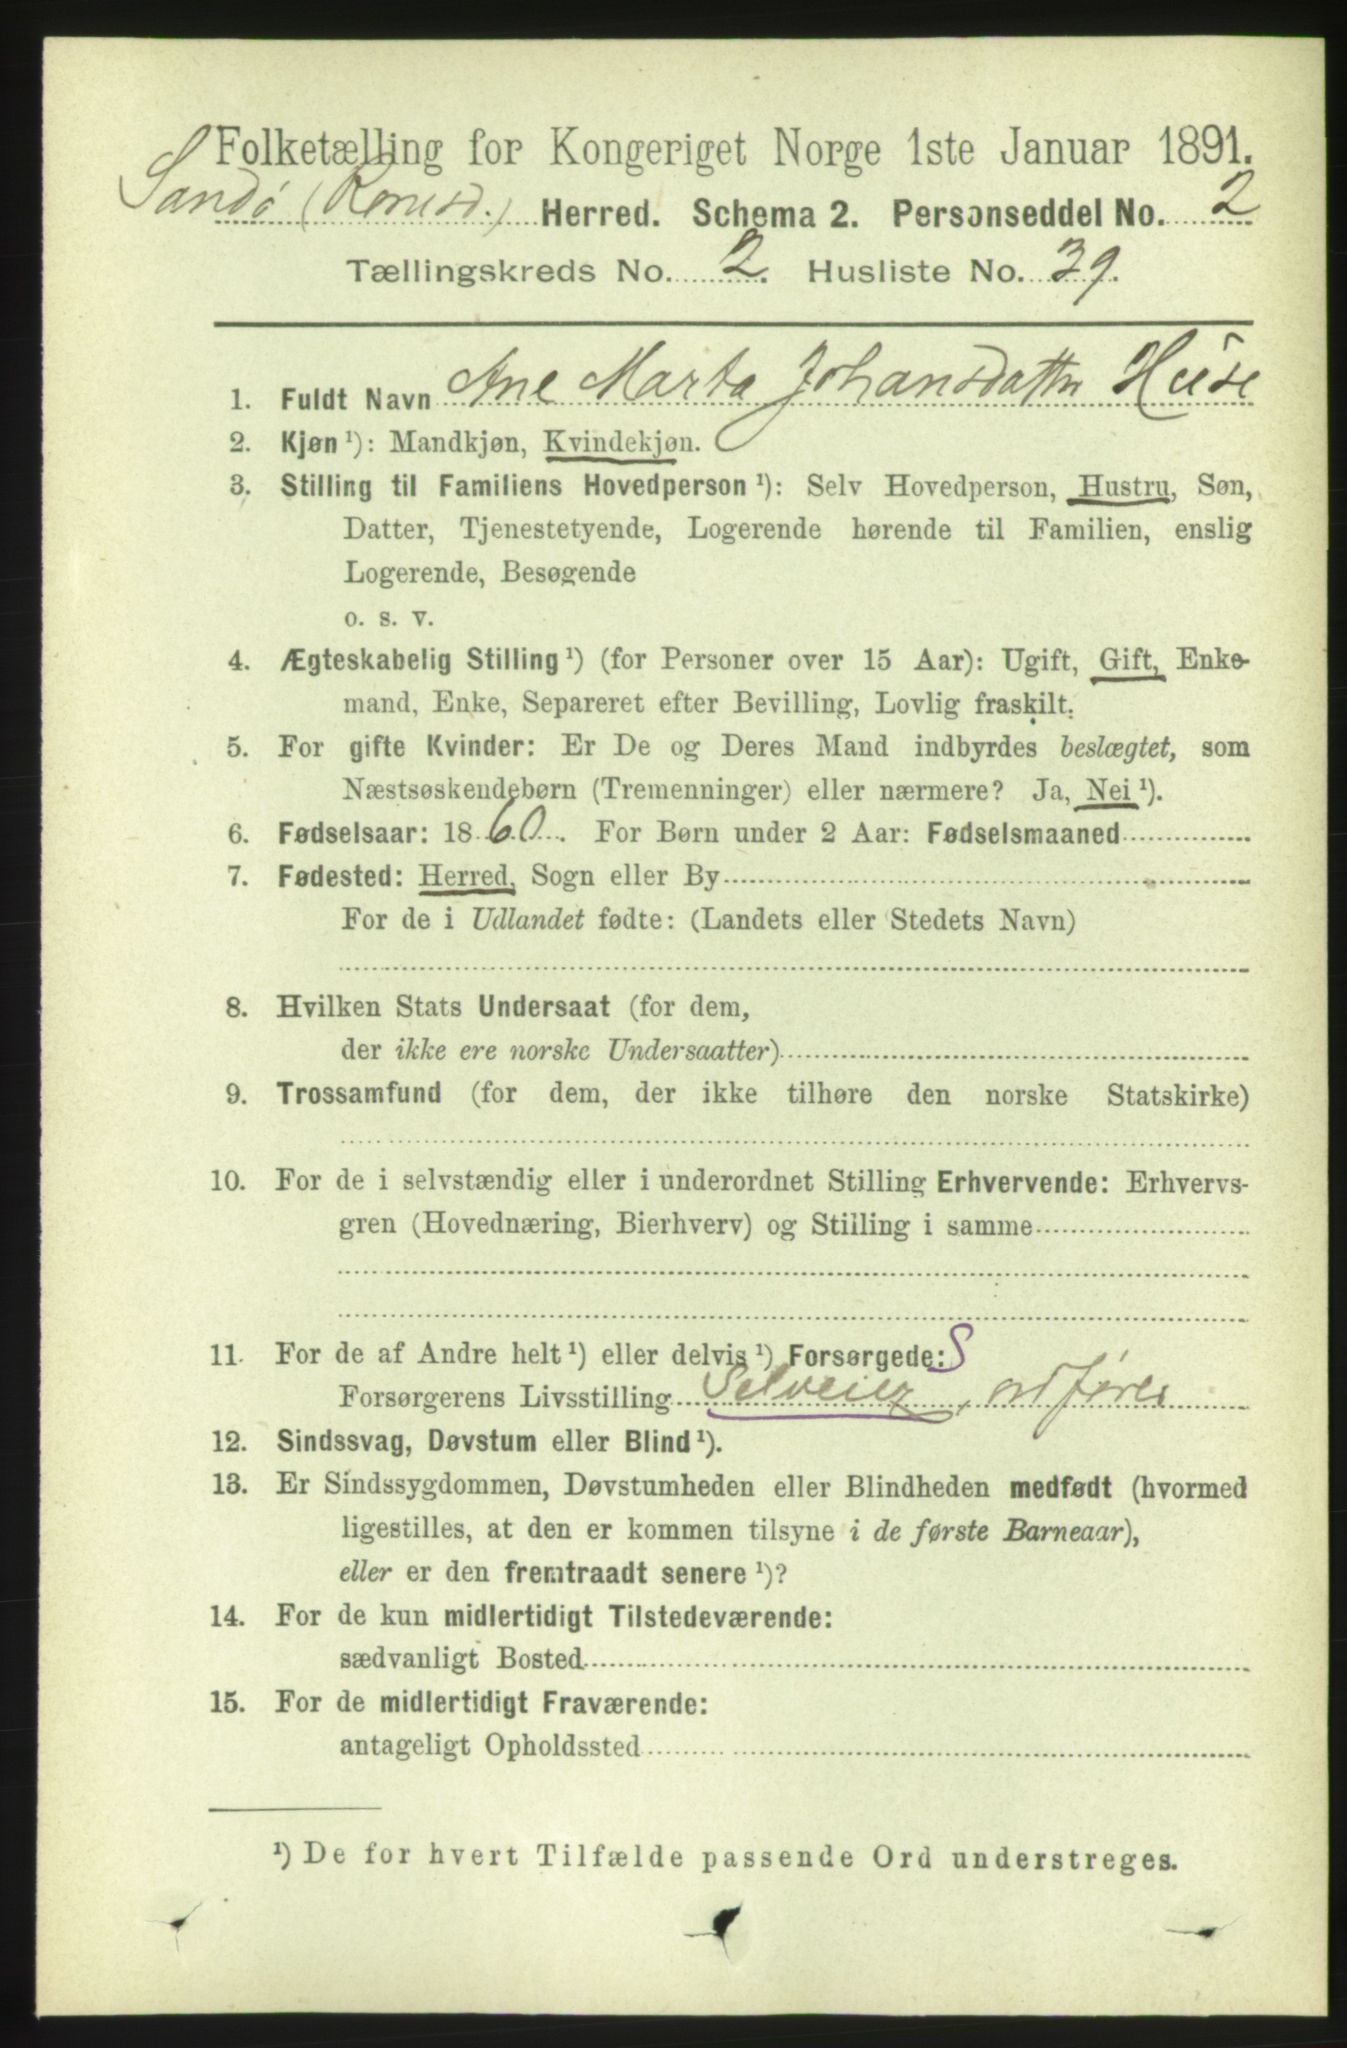 Folketælling for Kongeriget Norge 1ste Januar 1891.
Sandø (Romsd.) Herred. Schema 2. Personseddel No. 2
Tællingskreds No. 2. Husliste No. 39.
1. Fuldt Navn Ane Marta Johansdatter Huse
2. Kjøn ¹): Mandkjøn, Kvindekjøn.
3. Stilling til Familiens Hovedperson ¹): Selv Hovedperson, Hustru, Søn,
Datter, Tjenestetyende, Logerende hørende til Familien, enslig
Logerende, Besøgende
o. s. v.
4. Ægteskabelig Stilling ¹) (for Personer over 15 Aar): Ugift, Gift, Enke-
mand, Enke, Separeret efter Bevilling, Lovlig fraskilt.
5. For gifte Kvinder: Er De og Deres Mand indbyrdes beslægtet, som
Næstsøskendebørn (Tremenninger) eller nærmere? Ja, Nei ¹).
6. Fødselsaar: 1860. For Børn under 2 Aar: Fødselsmaaned
7. Fødested: Herred, Sogn eller By
For de i Udlandet fødte: (Landets eller Stedets Navn)
8. Hvilken Stats Undersaat (for dem,
der ikke ere norske Undersaatter)
9. Trossamfund (for dem, der ikke tilhøre den norske Statskirke)
10. For de i selvstændig eller i underordnet Stilling Erhvervende: Erhvervs-
gren (Hovednæring, Bierhverv) og Stilling i samme
11. For de af Andre helt ¹) eller delvis ¹) Forsørgede: S
Forsørgerens Livsstilling Selveier, ordfører
12. Sindssvag, Døvstum eller Blind ¹).
13. Er Sindssygdommen, Døvstumheden eller Blindheden medfødt (hvormed
ligestilles, at den er kommen tilsyne i de første Barneaar),
eller er den fremtraadt senere ¹)?
14. For de kun midlertidigt Tilstedeværende:
sædvanligt Bosted
15. For de midlertidigt Fraværende:
antageligt Opholdssted
¹) De for hvert Tilfælde passende Ord understreges.